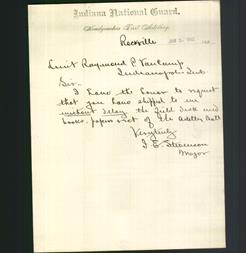 Indiana National Guard.
Headquarters First Artillery
Rockville
Lieut Raymond P. VanCamp
Indianapolis Ind.
Sir.
I have the honor to request
that you have shipped to me
without delay, the field desk and
books, papers &ct of the Artillery Batt
Very truly
Major